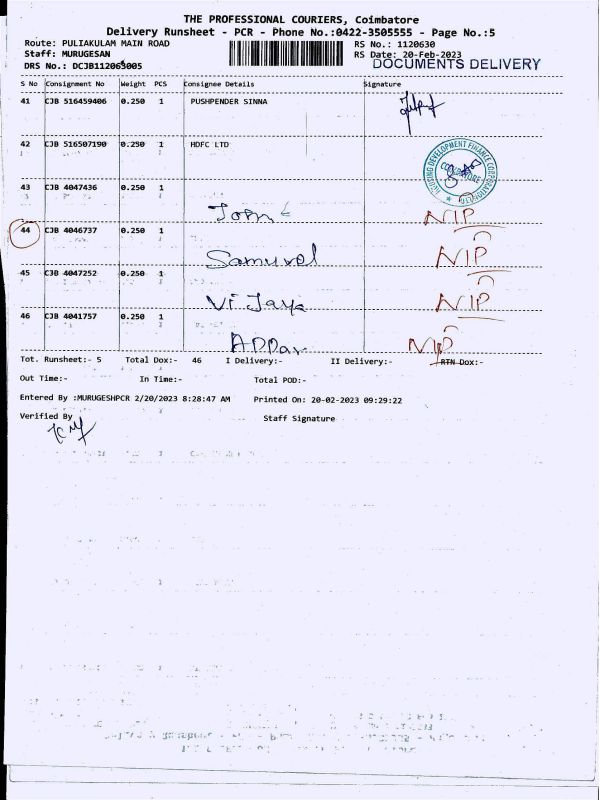 THE PROFESSIONAL COURIERS, Coimbatore
Delivery Runsheet - PCR - Phone No.:0422-3505555 - Page No.:5
Route: PULIAKULAM MAIN ROAD RS No.: 1120630
Staff: MURUGESAN RS Date: 20-Feb-2023
DRS No.: DCJB112063005 DOCUMENTS DELIVERY
S No Consignment No Weight PCS Consignee Details Signature
41 CJB 516459406 0.250 1 PUSHPENDER SINNA
42 CJB 516507190 0.250 1 HDFC LTD
HOUSING DEVELOPMENT FINANCE CORPORATION LTD
COIMBATORE
43 CJB 4047436 0.250 1
John NIP
44 CJB 4046737 0.250 1
Samuvel NIP
45 CJB 4047252 0.250 1
Vijaya NIP
46 CJB 4041757 0.250 1
NIP
Tot. Runsheet:- 5 Total Dox:- 46 I Delivery:- II Delivery:- RTN Dox:-
Out Time:- In Time:- Total POD:-
Entered By :MURUGESHPCR 2/20/2023 8:28:47 AM Printed On: 20-02-2023 09:29:22
Verified By Staff Signature